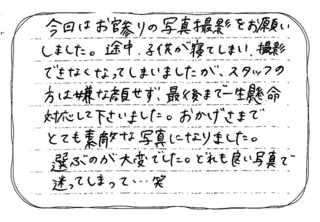 今日はお宮参りの写真撮影をお願い
しました。途中、子供が寝てしまい、撮影
できなくなってしまいましたが、スタッフの
方は嫌な顔せず、最後まで一生懸命
対応して下さいました。おかげさまで
とても素敵な写真になりました。
選ぶのが大変でした。どれも良い写真で
迷ってしまって…笑